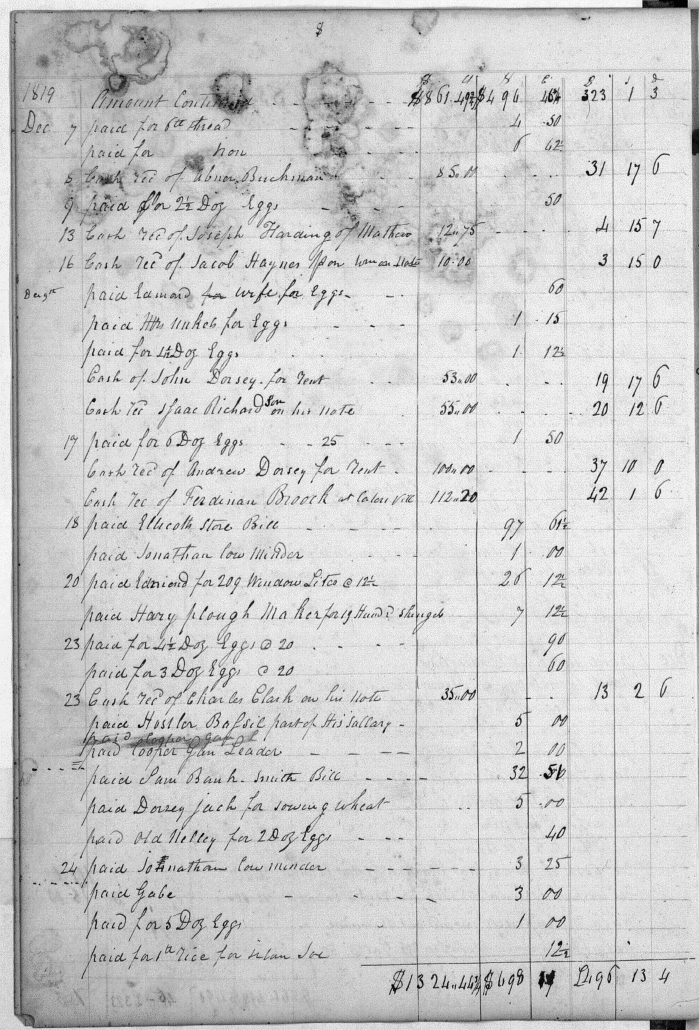 $
$ Cts $ C £ s d
1819 Amount Continued - - - $861.49¾ $496 46¼ 323 1 3
Dec 7 paid for 6 lb thread - - - 4 50
paid for Iron - - - 6 62½
8 Cash Rec'd of Abner Buckman 85.00 31 17 6
9 paid for 2½ Doz Eggs - - 50
13 Cash Rec'd of Joseph Harding of Mathew 12"75 - - 4 15 7
16 Cash Rec'd of Jacob Haynes upon note 10.00 3 15 0
paid Edmond for wife for Eggs - - 60
paid Mrs for Eggs - - - 1 15
paid for 4½ Doz Eggs - - 1 12½
Cash of John Dorsey for Rent - - 53"00 - - 19 17 6
Cash Rec Isaac Richardson on his note 55"00 - - 20 12 6
17 paid for 6 Doz Eggs - - 25 - - - 1 50
Cash Rec'd of Andrew Dorsey for Rent - 100"00 - - 37 10 0
Cash Rec of Ferdinan Broock at 112"20 42 1 6
18 paid Ellicott Store Bill - - - - 97 61½
paid Jonathan Cow Minder - - - 1 00
20 paid Edmond for 209 Window @ 12½ 26 12½
paid Hary plough Maker for 19 Hund'd Shingels 7 12½
23 paid for 4½ Doz Eggs @ 20 90
paid for 3 Doz Eggs @ 20 60
23 Cash Rec'd of Charles Clark on his note 35"00 - - 13 2 6
paid Hostler Bassil part of His Sallary - 5 00
paid Cooper Gan Leader - - - 2 00
paid Sam Bank Smith Bill - - - - 32 56
paid Dorsey Jack for sowing wheat - - 5 .00
paid Old Nelley for 2 Doz Eggs - - - 40
24 paid Johnathon Cow minder - - - 3 25
paid Gabe - - - - 3 00
paid for 5 Doz Eggs - - - 1 00
paid for 1 lb Rice for Joe 12½
$1324"44¾ $698 £496 13 4